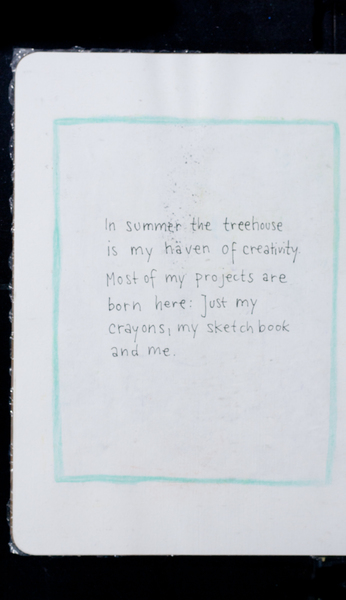 In summer the treehouse
is my haven of creativity.
Most of my projects are
born here: Just my
crayons, my sketchbook
and me.